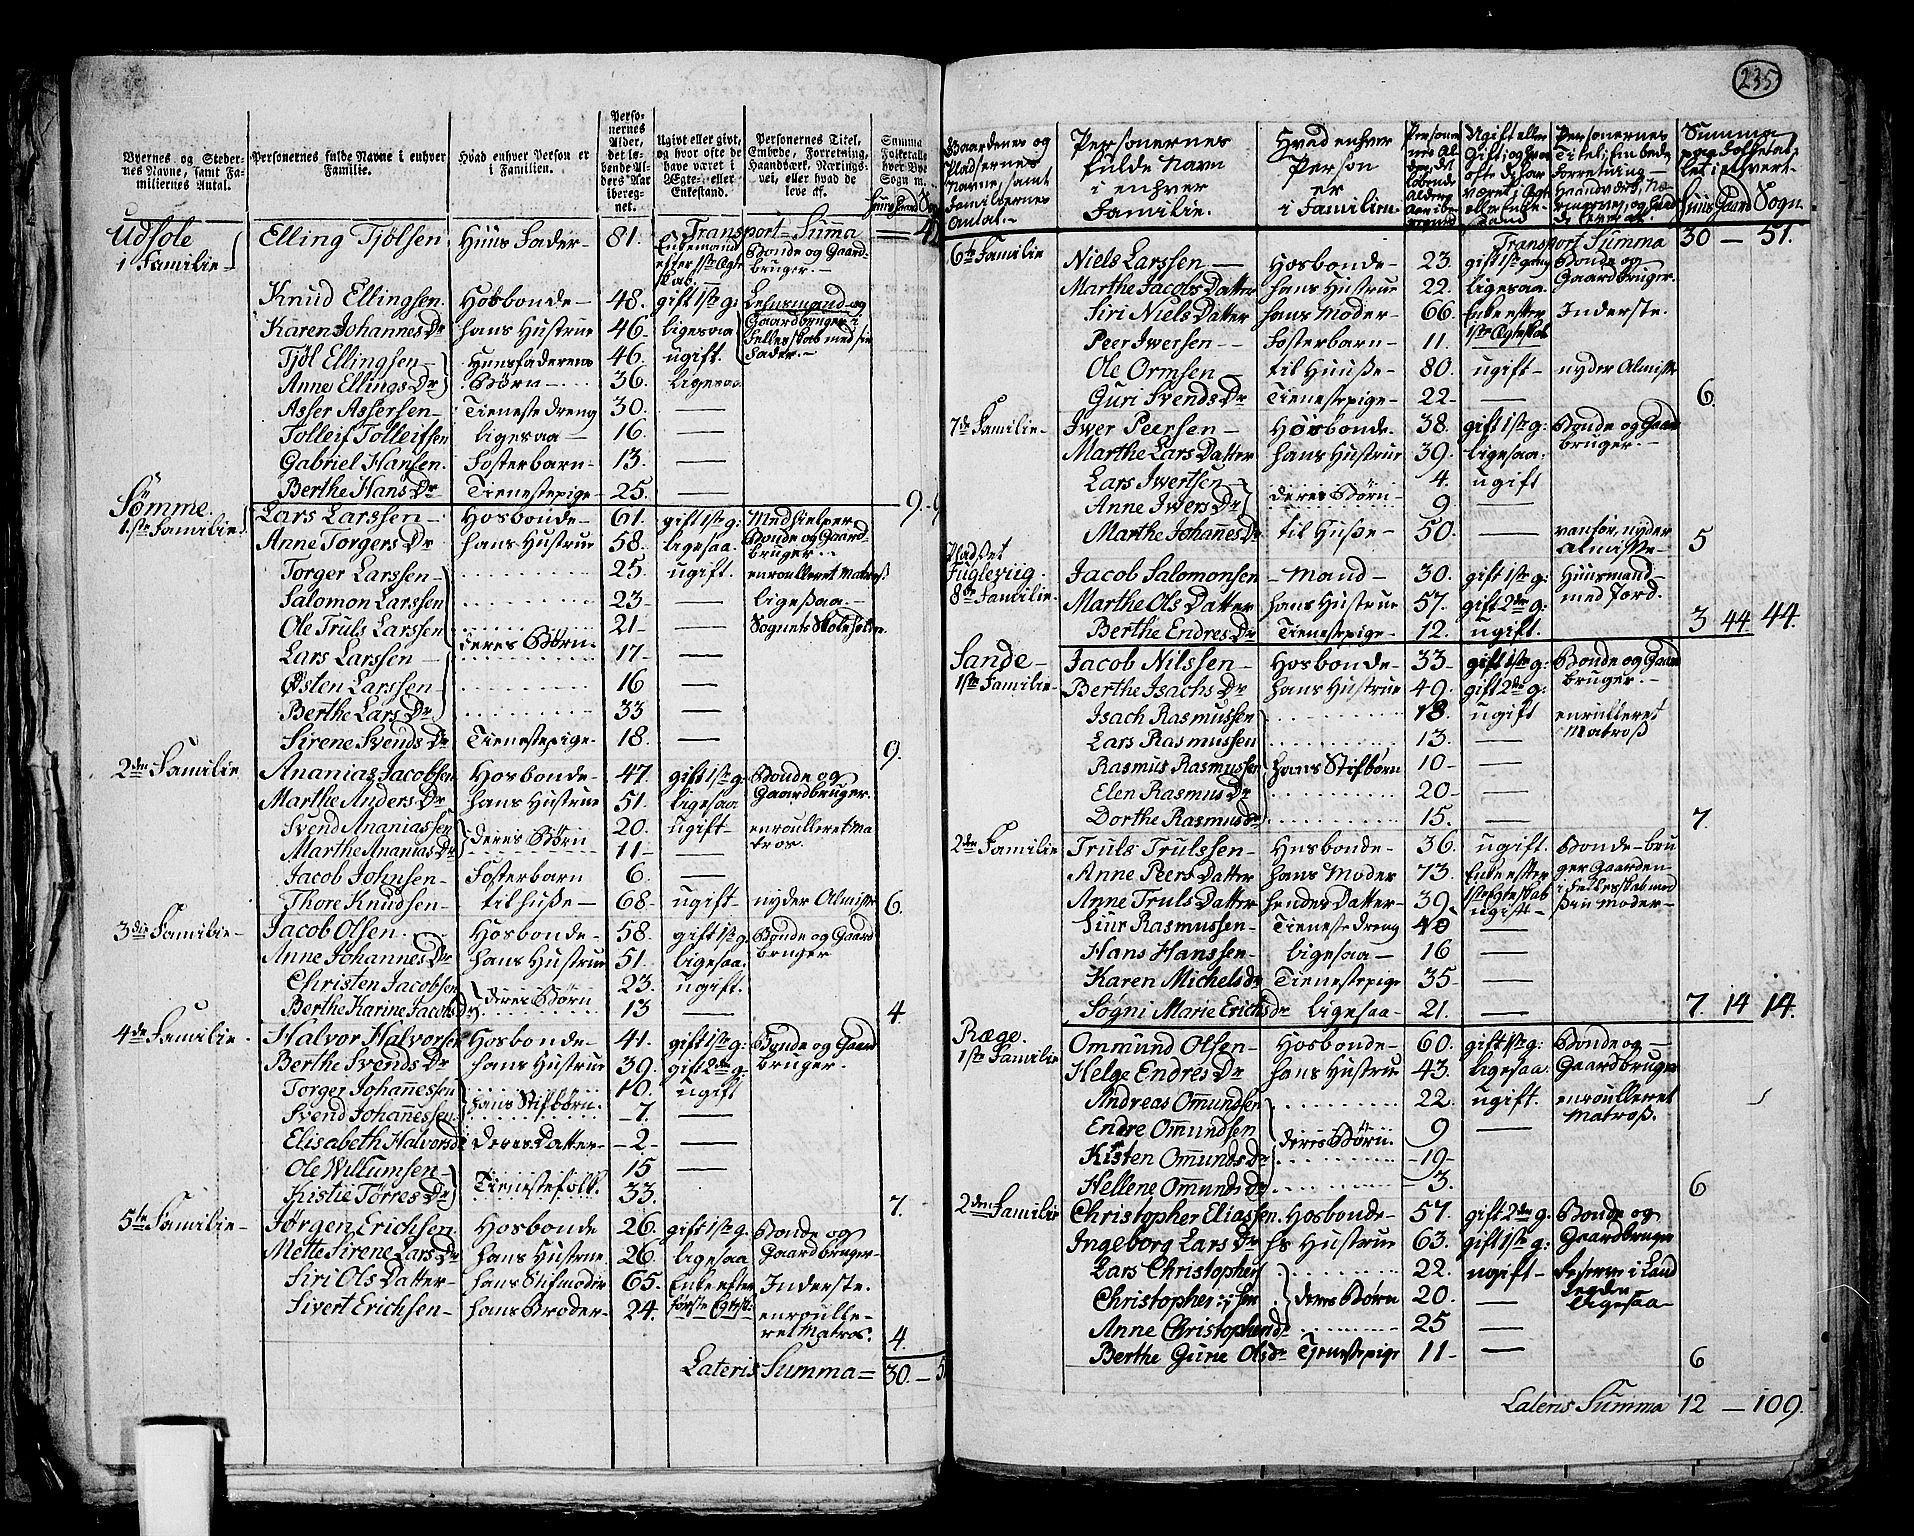 Byernes og Steder-
nes Navne, samt Fa-
miliernes Antal.
Personernes fulde Navne i enhver
Familie.
Hvad enhver Person er
i Familien.
Perso-
nernes
Alder,
det lø-
bende Al-
ders Aar
iberegnet.
Ugivt eller givt,
og hvor ofte de
have været i
Ægte- eller
Enkestand.
Personernes Titel,
Embede, Forretning,
Haandværk, Nærings-
vei, eller hvad de
leve af.
Summa
Folketallet
hver Bye
Sogn
Transport Summa
Udsole
1 Familie
Elling Tjølsen Huus Fader 81. Enkemand efter 1ste Ægteskab. Bonde og Gaardbruger.
Knud Ellingsen Hosbonde 48. gift 1ste g: Lehnsmand og
Karen Johannes Dr hans Hustrue 46. ligesaa Gaardbruger i
Tjøl Ellingsen Huusfaderens 46. ugift. Fellesskab med sin Fader.
Anne Ellings Dr Børn 36. ligesaa
Asser Assersen Tieneste dreng 30. —
Tolleif Tolleifsen ligesaa 16. —
Gabriel Hansen Fosterbarn 13. —
Berthe Hans Dr Tienestepige 25. — 9.
Sømme.
1ste Familie
Lars Larssen Hosbonde 61. gift 1ste g: Medhielper
Anne Torgers Dr hans Hustrue 58. ligesaa. Bonde og Gaardbruger.
Torger Larssen 25. ugift. enroulleret Matros
Salomon Larssen 23 — ligesaa.
Ole Truls Larssen 21 — Sognets Skoleholder.
Lars Larssen deres Børn 17 —
Østen Larssen 16 —
Berthe Lars Dr 33 —
Sirene Svends Dr Tienestepige 18. — 9.
2den Familie
Ananias Jacobsen Hosbonde 47. gift 1ste g: Bonde og
Marthe Anders Dr hans Hustrue 51. ligesaa Gaardbruger.
Svend Ananiassen deres Børn 20. ugift enroulleret Matros.
Marthe Ananias Dr 11 —
Jacob Johnsen Fosterbarn 6. —
Thore Knudsen til huße 68. ugift nyder Almisse 6.
3die Familie
Jacob Olsen Hosbonde 58. gift 1ste g. Bonde og Gaard
Anne Johannes Dr hans Hustrue 51. ligesaa. bruger
Christen Jacobsen deres Børn 23. ugift.
Berthe Karine Jacobs Dr 13 — 4.
4de Familie
Halvor Halvorsen Hosbonde 41. gift 1ste g: Bonde og Gaard
Berthe Svends Dr hans Hustrue 39. gift 2den g: bruger.
Torger Johannessen hans Stifbørn. 10. ugift
Svend Johannessen 7. —
Elisabeth Halvorsdr deres Datter 2 —
Ole Willumsen Tienestefolk. 15 —
Kistie Tørres Dr 33. 7.
5te Familie
Jørgen Erichsen Hosbonde 26. gift 1ste g. Bonde og
Mette Sirene Lars Dr hans Hustrue. 26. ligesaa Gaardbruger
Siri Ols Datter hans Stifmoder 65. Enke efter Inderste.
Sivert Erichsen hans Broder 24. første Egtesk: enroulleret Matros. 4.
Lateris Summa = 30.
235
Gaardenes og
Pladsernes
Navne, samt
Familiernes
Antal.
Personernes
fulde Navn
i enhver
Familie.
Hvad enhver
Person
er
i Familien
Personernes
Titel, Embede
Forretning
Summa
Huus Gaard Sogn.
Transport Summa 30 — 51.
6te Familie
Niels Larssen Hosbonde 23. gift 1ste gang Bonde og
Marthe Jacobs Datter hans Hustrue 22. ligesaa. Gaardbruger.
Siri Niels Datter hans Moder 66. Enke efter 1ste Egteskab Inderste.
Peer Iwersen Fosterbarn 11. —
Ole Ormsen til Huuße 80. ugift nyder Almisse
Guri Svends Dr Tienestepige 22 — 6.
7de Familie
Iwer Peersen Hosbonde 38. gift 1ste g: Bonde og Gaard
Marthe Lars Datter hans Hustrue 39. ligesaa: bruger.
Lars Iwertsen deres Børn 4. ugift
Anne Iwers Dr 9 —
Marthe Johannes Dr til Huße 50. — vanfør, nyder Almisse 5
Pladset
Fuglevig
8de Familie
Jacob Salomonsen Mand 30. gift 1ste g: Huusmand
Marthe Ols Datter hans Hustrue 57. gift 2den g: med Jord.
Berthe Endres Dr Tienestepige 12. ugift. 3 44. 44.
Sande
1ste Familie
Jacob Nilssen Hosbonde 33 gift 1ste g: Bonde og Gaard
Berthe Isachs Dr hans Hustrue 49. gift 2den g: bruger.
Isach Rasmussen 18. ugift enrulleret
Lars Rasmussen 13. — Matroß
Rasmus Rasmussen hans Stifbørn 10 —
Elen Rasmus Dr 20 —
Dorthe Rasmus Dr 15. — 7.
2den Familie
Truls Trulssen Husbonde 36. ugift. Bonde bru
Anne Peers Datter hans Moder 73. Enke efter ger Gaarden
Anne Truls Datter hendes Datter 39. 1ste Egteskab ugift i Fellesskab med sin Moder
Siur Rasmussen Tieneste dreng 40 —
Hans Hanssen ligesaa 16 —
Karen Michels Dr Tienestepige 35 —
Søgni Marie Erichs Dr ligesaa 21. — 7. 14 14.
Ræge.
1ste Familie
Ommund Olsen Hosbonde 60. gift 1ste g: Bonde og
Helge Endres Dr hans Hustrue 43. ligesaa. Gaardbruger
Andreas Omundsen 22. ugift. enroulleret Matroß.
Endre Omundsen deres Børn. 9 —
Kisten Omunds Dr 19
Hellene Omunds Dr 3. 6
2den Familie
Christopher Eliassen. Hosbonde 57. gift 2den g. Bonde og
Ingeborg Lars Dr hs Hustrue 63. gift 1ste g: Gaardbruger
Lars Christophers 22. ugift Reserve i Land
Christopher :/: sen deres Børn 20. — ligesaa
Anne Christophersdr 25 —
Berthe Gurie Olsdr Tjenestepige 11 — 6
Lateris Summa 12 — 109.